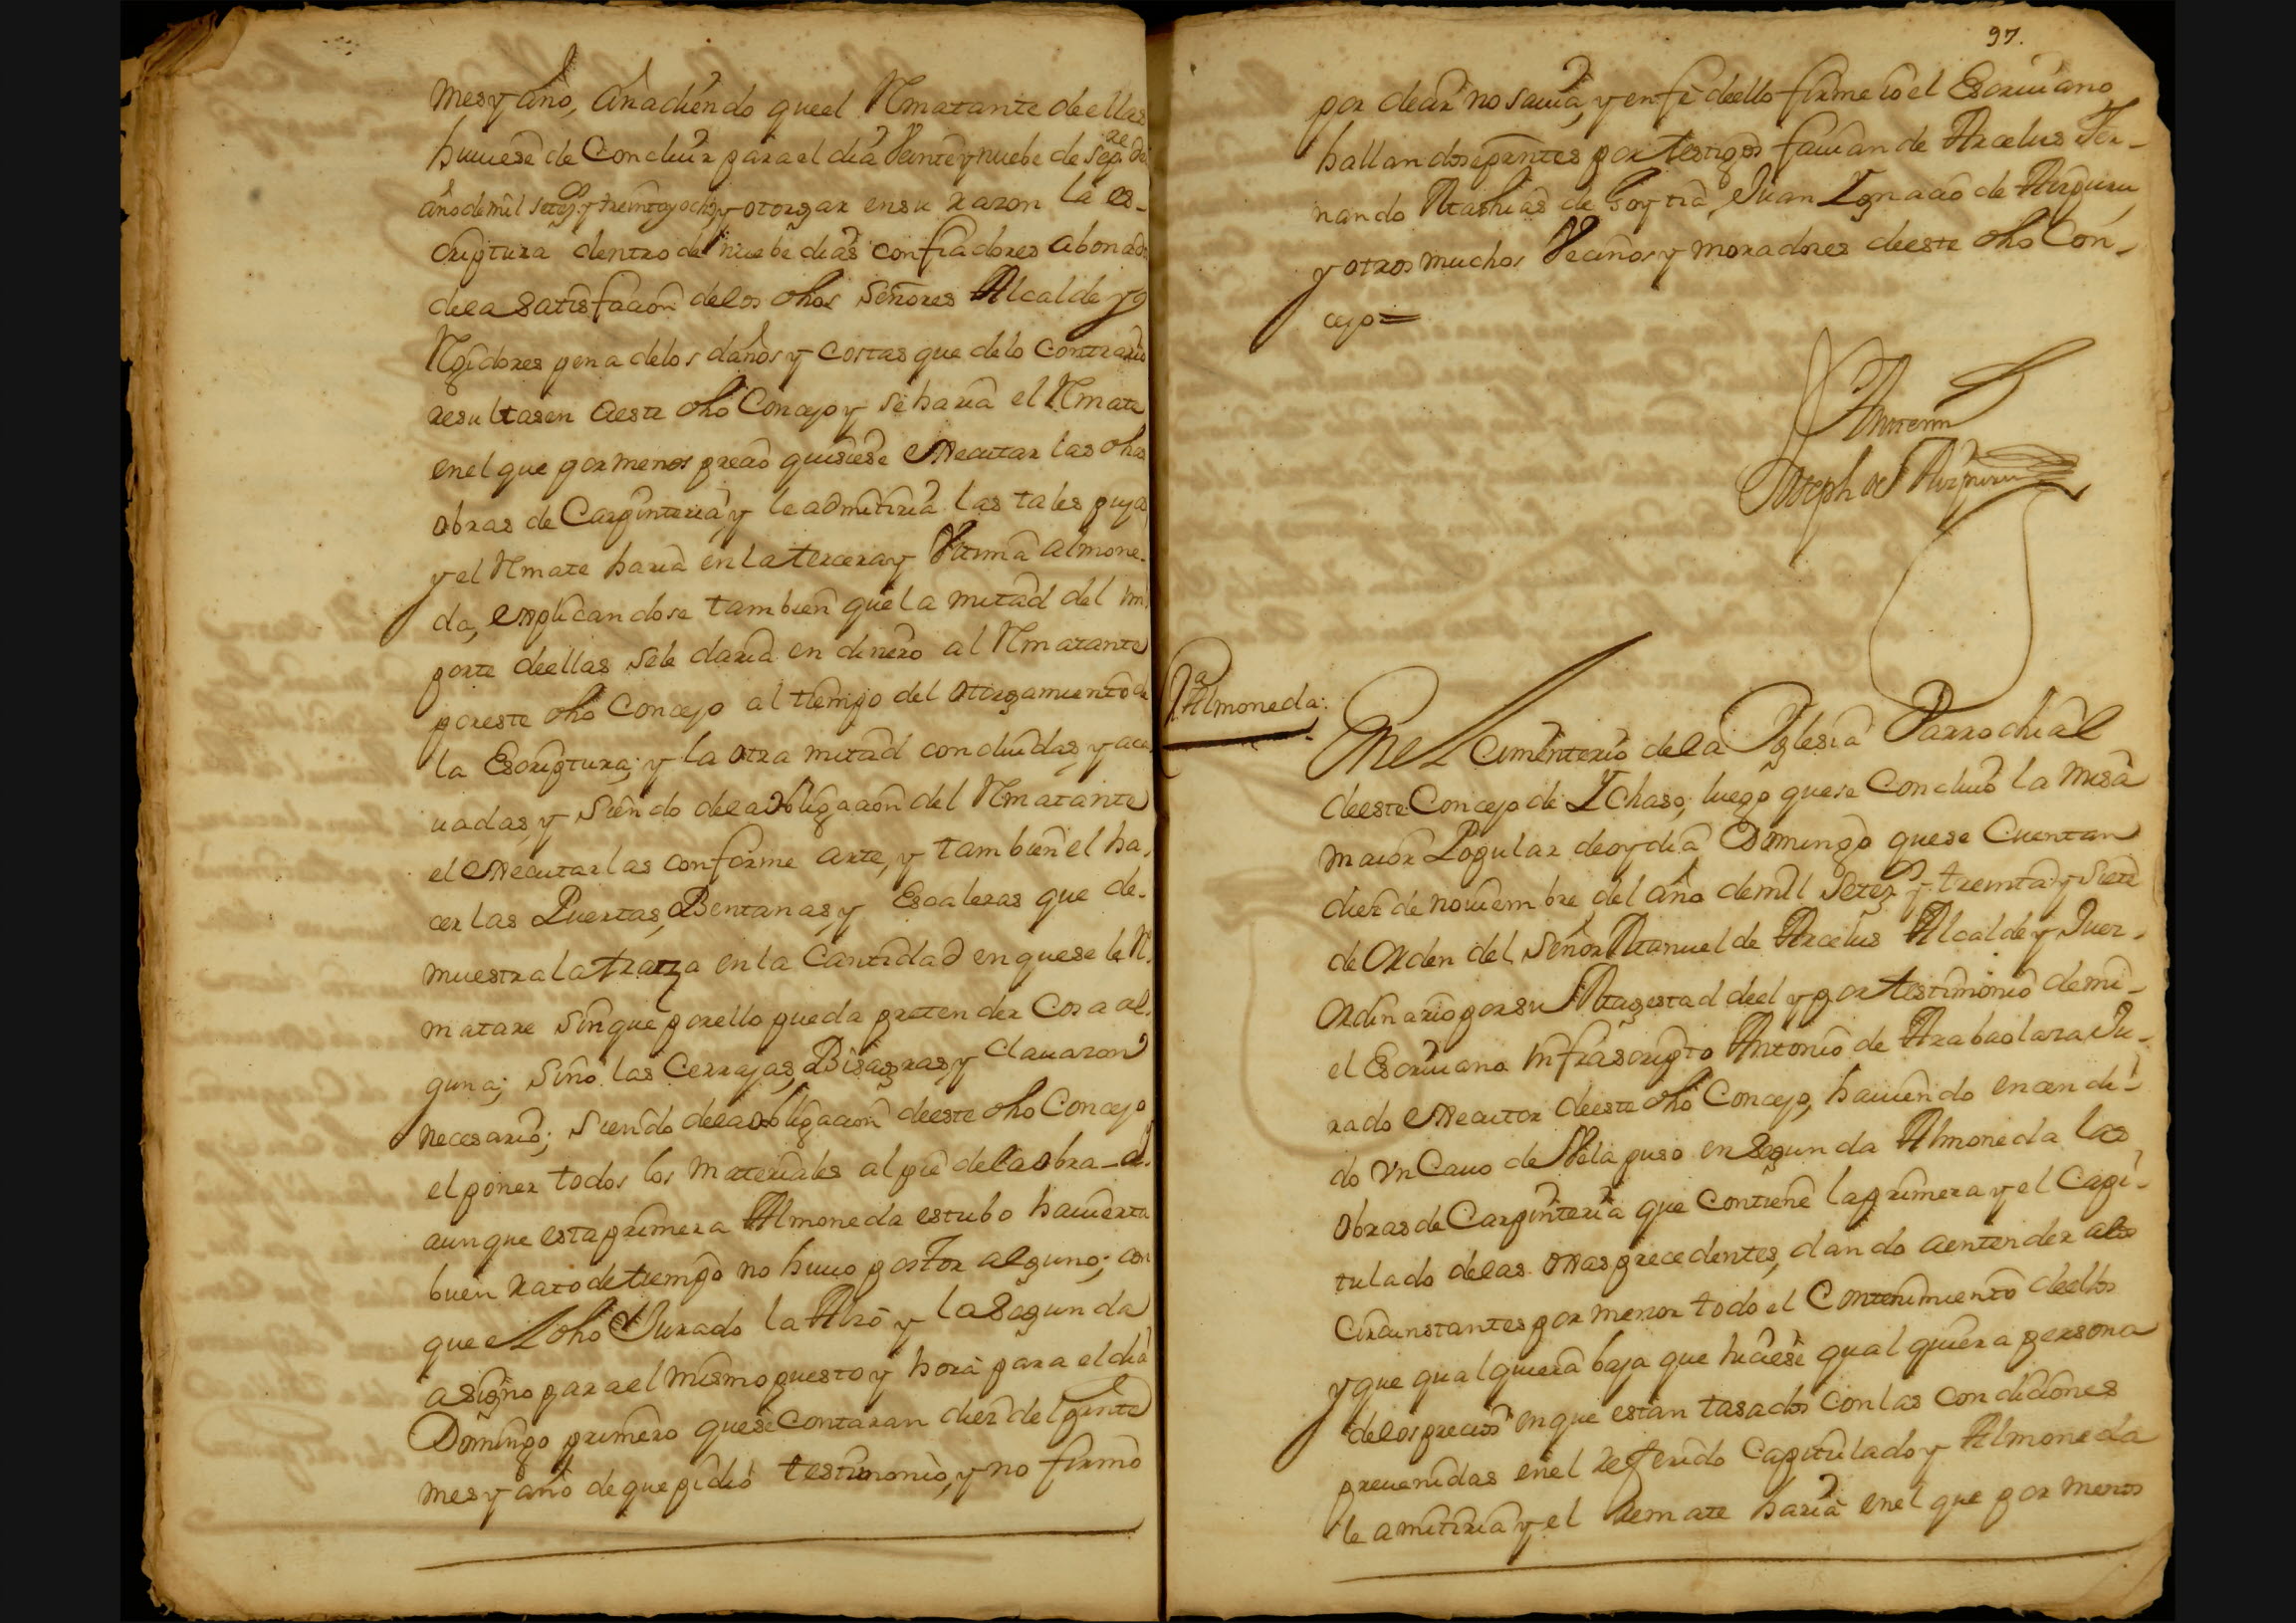 mes y año, añadiendo que el Rmatante de ellas
huuiese de Concluir para el dia Veinte y nuebe de Sepre de
año de mil setezos y treinta y ocho, y otorgar en su razon la es-
criptura dentro de nuebe dias con fiadores abonados
de la Satisfacion de los dhos Señores Alcalde y
Rgidores pena de los daños y costas que de lo contrario
resultasen a este dho Concejo y se haria el Rmate
en el que por menos precio quisiese executar las dhas
obras de Carpinteria, y le admitiria las tales pujas
y el Rmate haria en la tercera y Vltima almone-
da, explicandose tambien que la mitad del im-
porte de ellas se le daria en dinero al Rmatante
por este dho Concejo al tiempo del otorgamiento de
la Escriptura; y la otra mitad concluidas, y aca-
uadas, y siendo de la obligacion del Rmatante
el executarlas conforme arte, y tambien el ha-
cer las Puertas, Bentanas, y Escaleras que de-
muestra la traza en la Cantidad en que se le R-
matare sin que por ello pueda pretender Cosa al-
guna; sino las Cerrajas, Bisagras, y clauazon
necesario; siendo de la obligacion de este dho Concejo
el poner todos los materiales al pie de la obra y
aunque esta primera Almoneda estubo hauierta
buen rato de tiempo no huuo postor alguno; con
que el dho Jurado la Alzó y la Segunda
asigno para el mismo puesto y hora para el dia
Domingo primero que se Contaran diez del pnte
mes y año de que pidió testimonio, y no firmó
97.
por decir no sauia, y en fe de ello firme io el Escriuano
hallandose presentes por testigos fauian de Arcelus Fer-
nando Mathias de Goytia, Juan Ygnacio de Aizpuru,
y otros muchos Vecinos y moradores de este dho Con-
cejo=
Ante mi
Joseph de Aizpuru
2ª Almoneda.
En el Cimenterio de la Yglesia Parrochial
de este Concejo de Ychaso, luego que se Concluió la misa
maior Popular de oy dia Domingo que se Cuentan
diez de nouiembre del año de mil setezos y treinta y siete
de Orden del Señor Manuel de Arcelus Alcalde y Juez
Ordinario por su Magestad de el y por testimonio de mi
el Escriuano infrascripto Antonio de Arabaolaza Ju-
rado executor de este dho Concejo, hauiendo encendi-
do vn Cauo de Vela puso en Segunda Almoneda las
obras de Carpinteria que contiene la primera y el Capi-
tulado de las ojas precedentes, dando a entender a los
Circunstantes por menor todo el Contenimiento de ellos
y que qualquiera baja que hiciese qualquiera persona
de los precios en que estan tasados con las condiciones
preuenidas en el referido Capitulado y Almoneda
le amitiria y el remate haria en el que por menos